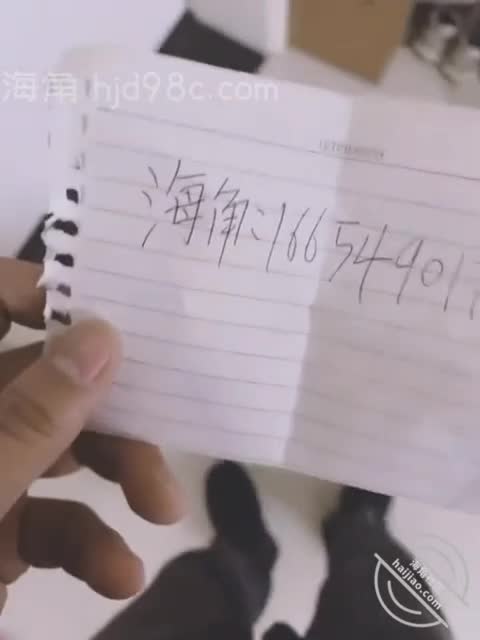 海角 hjd98c.com
海角:166544901
haijiao.com